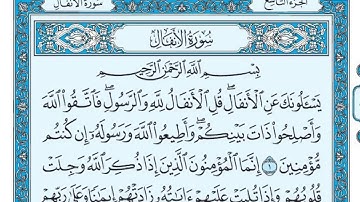 الجزء التاسع
سورة الأنفال
سُورَةُ الأَنفَالِ
بِسْمِ اللَّهِ الرَّحْمَٰنِ الرَّحِيمِ
يَسْـَٔلُونَكَ عَنِ ٱلْأَنفَالِ ۖ قُلِ ٱلْأَنفَالُ لِلَّهِ وَٱلرَّسُولِ ۖ فَٱتَّقُوا۟ ٱللَّهَ
وَأَصْلِحُوا۟ ذَاتَ بَيْنِكُمْ ۖ وَأَطِيعُوا۟ ٱللَّهَ وَرَسُولَهُۥٓ إِن كُنتُم
مُّؤْمِنِينَ ١ إِنَّمَا ٱلْمُؤْمِنُونَ ٱلَّذِينَ إِذَا ذُكِرَ ٱللَّهُ وَجِلَتْ
قُلُوبُهُمْ وَإِذَا تُلِيَتْ عَلَيْهِمْ ءَايَٰتُهُۥ زَادَتْهُمْ إِيمَٰنًا وَعَلَىٰ رَبِّهِمْ